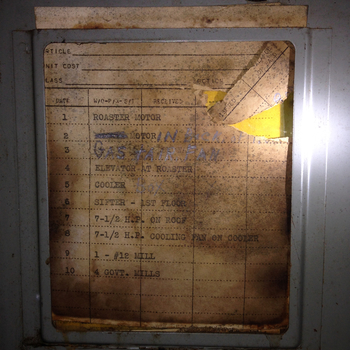 ARTICLE
UNIT COST
CLASS
DATE W/O-P/O-S/T RECEIVED
1 ROASTER MOTOR
2 MOTOR IN
3 GAS
4 ELEVATOR AT ROASTER
5 COOLER
6 SIFTER - 1ST FLOOR
7 7-1/2 H.P. ON ROOF
8 7-1/2 H.P. COOLING FAN ON COOLER
9 1 - #12 MILL
10 4 GOVT. MILLS